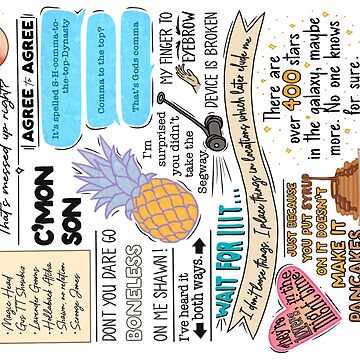 That's messed up right?
AGREE to AGREE
It's spelled S-H-comma-to-
the-top-Dynasty
Comma to the top?
That's Gods comma
MY FINGER TO
EYEBROW
DEVICE IS BROKEN
C'MON
SON
I'm
surprised
you didn't
take the
Segway
There are
over 400 stars
in the galaxy, maybe
more. No one knows
for sure.
Magic Head
Gus TT Showbiz
Lavender Gooms
Hollabackk Atcha
Shawn, no notation
Scrooge Jones
DON'T YOU DARE GO
BONELESS
ON ME SHAWN!
I've heard it
both ways.
WAIT FOR IIIT...
I don't lose things. I place things in locations which later elude me
JUST BECAUSE
YOU PUT SYRUP
ON IT DOESN'T
MAKE IT
PANCAKES
You're
in the